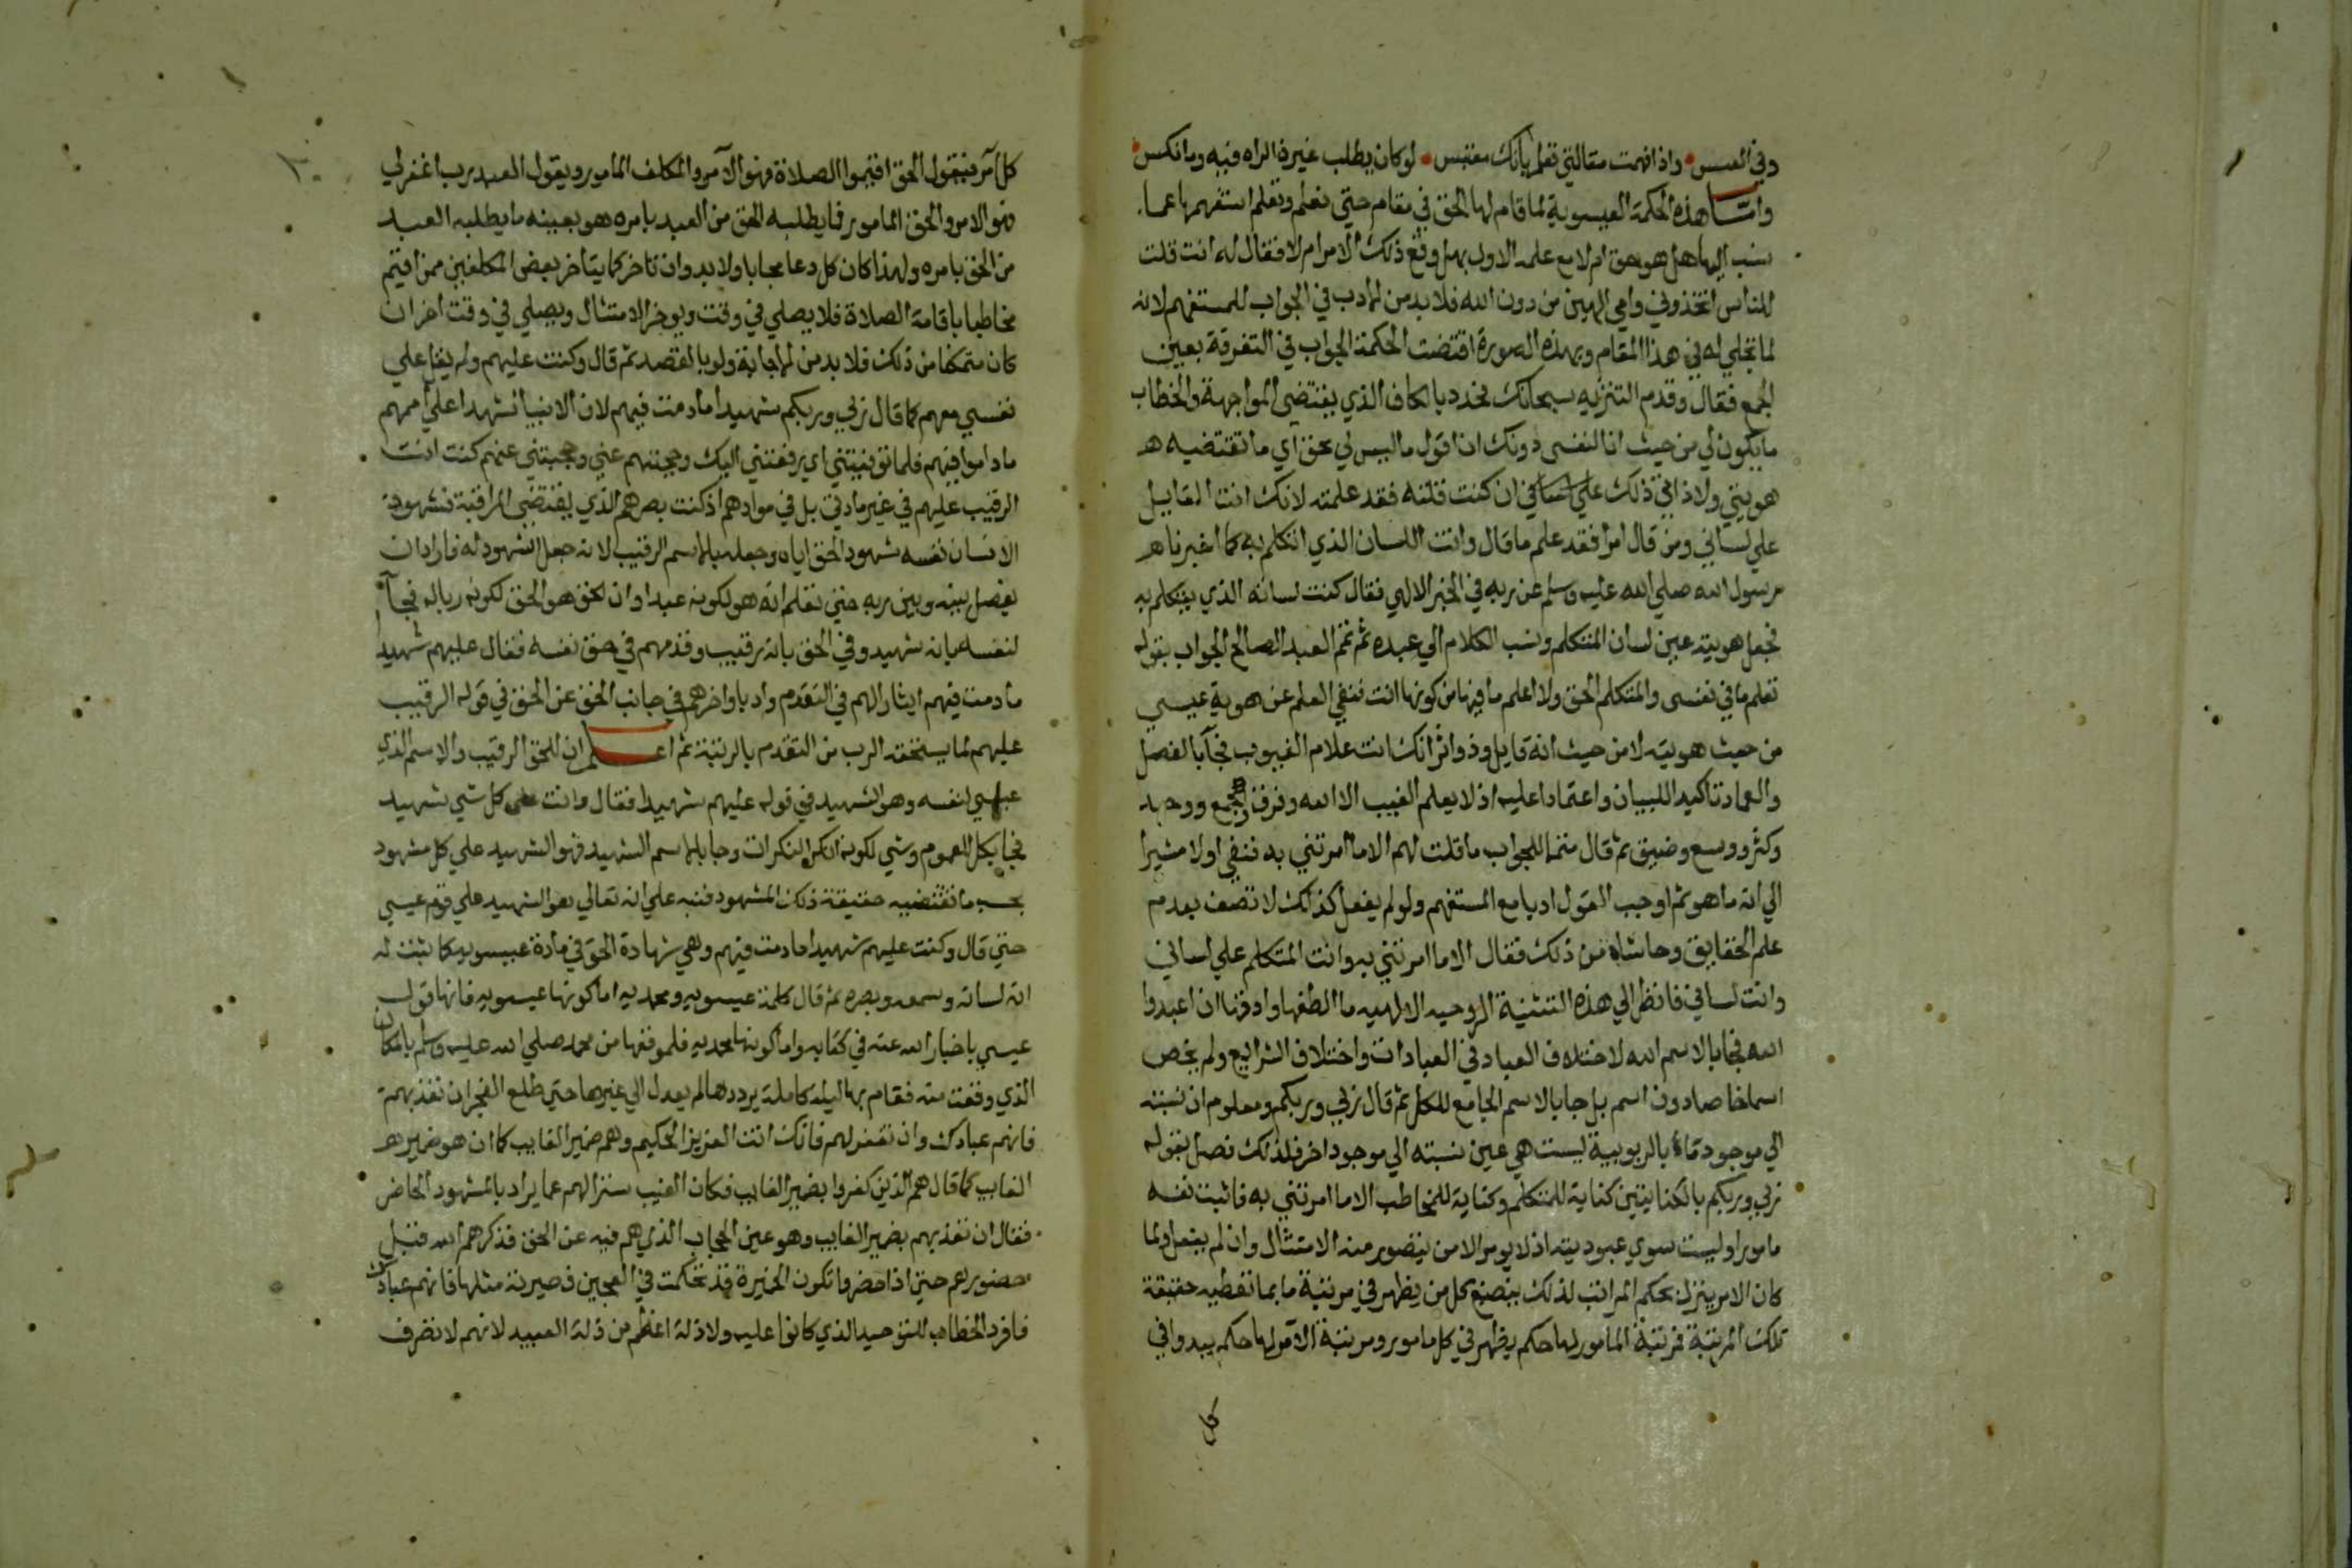 وفي العسس واذا فهمت مقالتي تعلم بانك مفتبس لو كان يطلب غيرة الراه فيه وما نكس
واما هذه الحكمة العيسوية لما قام لها الحق في مقام حتي نعلم وتعلم استفهمها عما
نسب اليها هل هو حق ام لا مع علمه الاول بهل وقع ذلك الامر ام لا فقال له اانت قلت
للناس اتخذوني وامي الهين من دون الله فلا بد من الادب في الجواب للمستفهم لانه
لما تجلي له في هذا المقام وبهذه الصورة اقتضت الحكمة الجواب في التفرقة بعين
الجمع فقال وقدم التنزيه سبحانك فحدد بالكاف الذي يقتضي المواجهة والخطاب
ما يكون لي من حيث انا لنفسي دونك ان اقول ما ليس لي بحق اي ما تقتضيه
هويتي ولا ذاتي ذلك ان كنت قلته فقد علمته لانك انت القايل
علي لساني ومن قال امرا فقد علم ما قال وانت اللسان الذي اتكلم به كما اخبرنا
رسول الله صلي الله عليه وسلم عن ربه في الخبر الالهي فقال كنت لسانه الذي يتكلم به
فجعل هويته عين لسان المتكلم ونسب الكلام الي عبده ثم تمم العبد الصالح الجواب بقوله
تعلم ما في نفسي والمتكلم الحق ولا اعلم ما فيها من كونها انت فنفي العلم عن هوية عيسي
من حيث هويته لا من حيث انه قايل وذو اثر انك انت علام الغيوب فجآ بالفصل
والعماد تاكيد اللبيان واعتمادا عليه اذ لا يعلم الغيب الا الله وفرق وجمع ووحد
وكثر ووسع وضيق ثم قال متمما للجواب ما قلت لهم الا ما امرتني به فنفي اولا مشيرا
الي انه ما هو ثم اوجب القول ادبا مع المستفهم ولو لم يفعل كذلك لا تصف بعدم
علم الحقايق وحاشاه من ذلك فقال الا ما امرتني به وانت المتكلم علي لساني
وانت لساني فانظر الي هذه التثنية الروحيه الالهيه ما الطفها وادقها ان اعبدوا
الله فجا بالاسم الله لاختلاف العباد في العبادات واختلاف الشرايع ولم يخص
اسما خاصا دون اسم بل جا بالاسم الجامع للكل ثم قال ربي وربكم ومعلوم ان نسبته
الي موجود ما بالربوبية ليست هي عين نسبته الي موجود اخر فلذلك فصل بقوله
ربي وربكم بالكنايتين كناية المتكلم وكناية للمخاطب الا ما امرتني به فاثبت نفسه
مامورا وليست سوي عبوديته اذ لا يومر الا من يتصور منه الامتثال وان لم يفعل ولما
كان الامر ينزل بحكم المراتب لذلك ينصبغ كل من يظهر في مرتبة ما بما تعطيه حقيقة
تلك المرتبة فمرتبة المامور لها حكم يظهر في كل مامور ومرتبة الآمر لها حكم يبدو في
كل
كل آمر فيقول الحق اقيموا الصلاة فهو الآمر والمكلف المامور ويقول العبد رب اغفر لي
فهو الامر والحق المامور فما يطلبه الحق من العبد بامره هو بعينه ما يطلبه العبد
من الحق بامره ولهذا كان كل دعا مجابا ولا بد وان تاخر كما يتاخر بعض المكلفين ممن اقيم
مخاطبا باقامة الصلاة فلا يصلي في وقت ويوخر الامتثال ويصلي في وقت اخر ان
كان متمكنا من ذلك فلا بد من الاجابة ولو بالقصد ثم قال وكنت عليهم ولم يقل علي
نفسي معهم كما قال ربي وربكم شهيدا ما دمت فيهم لان الانبيا شهدا علي اممهم
ما داموا فيهم فلما توفيتني اي رفعتني اليك وحجبتهم عني وحجبتني عنهم كنت انت
الرقيب عليهم في غير مادتي بل في موادهم اذ كنت بصرهم الذي يقتضي المراقبة فشهود
الانسان نفسه شهود الحق اياه وجعله بالاسم الرقيب لانه جعل الشهود له فاراد ان
يفصل بينه وبين ربه حتي نعلم انه هو لكونه عبدا وان الحق هو الحق لكونه ربا له فجآ
لنفسه بانه شهيد وفي الحق بانه رقيب وقدمهم في حق نفسه فقال عليهم شهيدا
ما دمت فيهم ايثارا لهم في التقدم وادبا واخرهم في جانب الحق عن الحق في قوله الرقيب
عليهم لما يستحقه الرب من التقدم بالرتبة ثم اعلم ان للحق الرقيب والاسم الذي
عيسي لنفسه وهو الشهيد في قوله عليهم شهيدا فقال وانت علي كل شي شهيد
فجا بكل للعموم وشي لكونه انكر النكرات وجا بالاسم الشهيد فهو الشهيد علي كل مشهود
بحسب ما تقتضيه حقيقة ذلك المشهود فنبه علي انه تعالي هو الشهيد علي قوم عيسي
حتي قال وكنت عليهم شهيدا ما دمت فيهم وهي شهادة الحق في مادة عيسويه كما ثبت له
انه لسانه وسمعه وبصره ثم قال كلمة عيسويه ومحمديه اما كونها عيسويه فانها قول
عيسي باخبار الله عنه في كتابه واما كونها محمديه فلموقعها من محمد صلي الله عليه وسلم بالمكان
الذي وقعت منه فقام بها ليلة كاملة يرددها لم يعدل الي غيرها حتي طلع الفجر ان تعذبهم
فانهم عبادك وان تغفر لهم فانك انت العزيز الحكيم وهم ضمير الغايب كما ان هو ضمير
الغايب كما قال هم الذين كفروا بضمير الغايب فكان الغيب سترا لهم عما يراد بالمشهود الحاضر
فقال ان تعذبهم بضمير الغايب وهو عين الحجاب الذي هم فيه عن الحق فذكرهم الله قبل
حضورهم حتي اذا حضروا تكون الخميرة قد تحكمت في العجين فصيرته مثلها فانهم عبادك
فافرد الخطاب للتوحيد الذي كانوا عليه ولا ذلة اعظم من ذلة العبيد لانهم لا تصرف